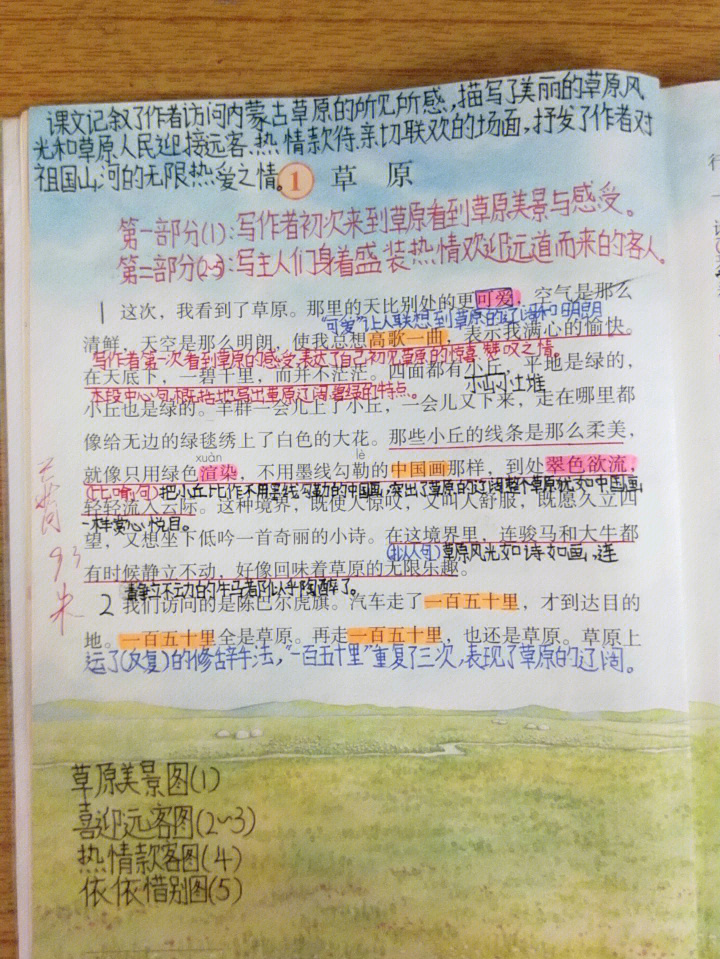 课文记叙了作者访问内蒙古草原的所见所感,描写了美丽的草原风
光和草原人民迎接远客、热情款待、亲切联欢的场面,抒发了作者对
祖国山河的无限热爱之情。
1 草原
第一部分(1):写作者初次来到草原看到草原美景与感受。
第二部分(2-5):写主人们身着盛装热情欢迎远道而来的客人。
1 这次，我看到了草原。那里的天比别处的更可爱，空气是那么
"可爱"让人联想到草原的辽阔和明朗
清鲜，天空是那么明朗，使我总想高歌一曲，表示我满心的愉快。
写作者第一次看到草原的感受,表达了自己初见草原的惊喜、赞叹之情。
在天底下，一碧千里，而并不茫茫。四面都有小丘，平地是绿的，
本段中心句,概括地写出草原辽阔、碧绿的特点。
小山,小土堆
小丘也是绿的。羊群一会儿上了小丘，一会儿又下来，走在哪里都
像给无边的绿毯绣上了白色的大花。那些小丘的线条是那么柔美，
xuàn lè
就像只用绿色渲染，不用墨线勾勒的中国画那样，到处翠色欲流，
(比喻句)把小丘比作不用墨线勾勒的中国画,突出了草原的辽阔,整个草原犹如中国画
轻轻流入云际。这种境界，既使人惊叹，又叫人舒服，既愿久立四
一样赏心悦目。
望，又想坐下低吟一首奇丽的小诗。在这境界里，连骏马和大牛都
(拟人句)草原风光如诗如画,连
有时候静立不动，好像回味着草原的无限乐趣。
静立不动的牛马都似乎陶醉了。
2 我们访问的是陈巴尔虎旗。汽车走了一百五十里，才到达目的
地。一百五十里全是草原。再走一百五十里，也还是草原。草原上
运了(反复)的修辞手法,"一百五十里"重复了三次,表现了草原的辽阔。
草原美景图(1)
喜迎远客图(2~3)
热情款客图(4)
依依惜别图(5)